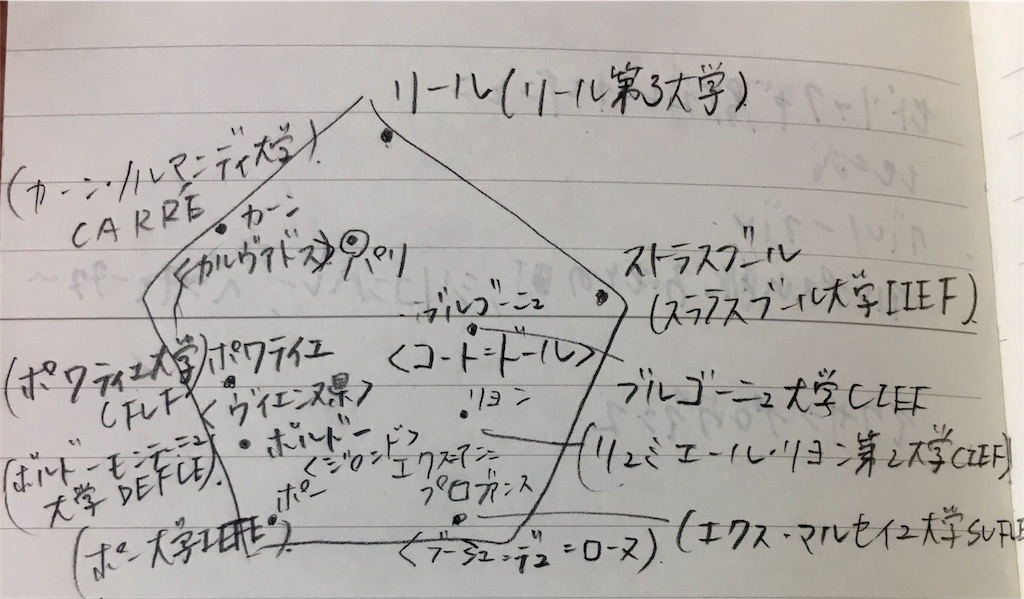 リール(リール第3大学)
(カーン・ノルマンディ大学)
CARRÉ
カーン
<カルヴァドス>
パリ
ストラスブール
(ストラスブール大学IIEF)
ブルゴーニュ
<コート=ドール>
ブルゴーニュ大学CIEF
(ポワティエ大学)
CFLF
ポワティエ
<ヴィエンヌ県>
リヨン
(リュミエール・リヨン第2大学CIEF)
ボルドー
<ジロンド>
(ボルドーモンテーニュ
大学DEFLE)
エクス=アン=
プロヴァンス
ポー
(ポー大学IEFE)
<ブーシュ=デュ=ローヌ>
(エクス・マルセイユ大学SUFLE